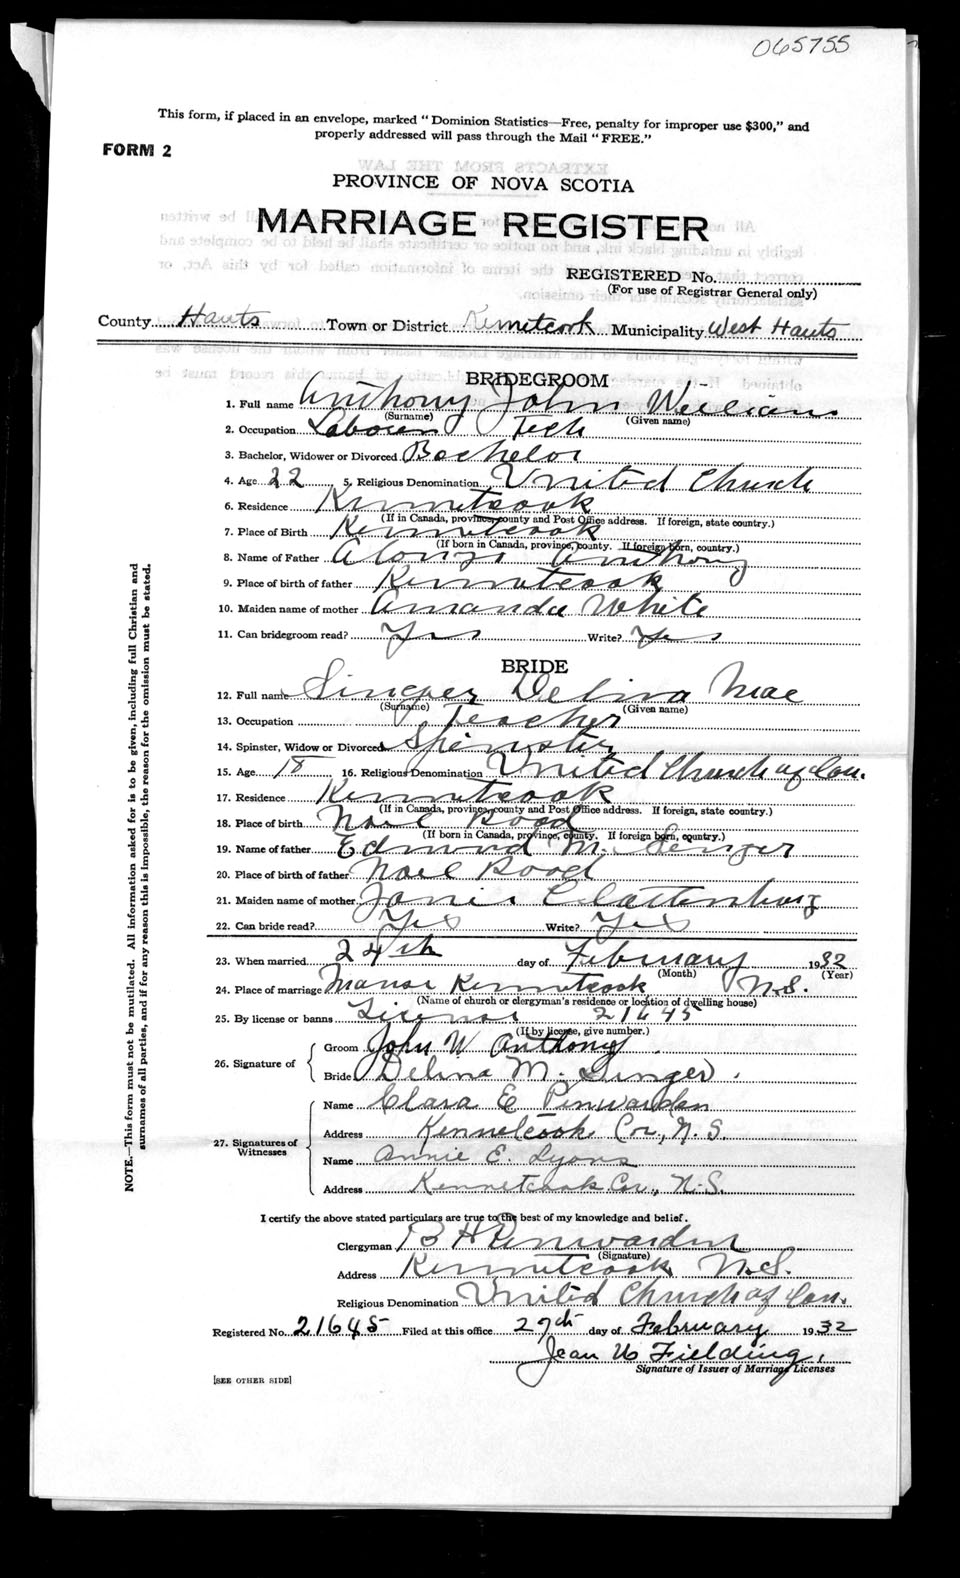 065755
This form, if placed in an envelope, marked "Dominion Statistics—Free, penalty for improper use $300," and
properly addressed will pass through the Mail "FREE."
FORM 2
EXTRACTS FROM THE LAW
PROVINCE OF NOVA SCOTIA
MARRIAGE REGISTER
REGISTERED No.
(For use of Registrar General only)
County Hants Town or District Kennetcook Municipality West Hants
BRIDEGROOM
1. Full name Anthony John William
(Surname) (Given name)
2. Occupation Laborer
3. Bachelor, Widower or Divorced Bachelor
4. Age 22 5. Religious Denomination United Church
6. Residence Kennetcook
(If in Canada, province, county and Post Office address. If foreign, state country.)
7. Place of Birth Kennetcook
(If born in Canada, province, county. If foreign born, country.)
8. Name of Father Alonzo Anthony
9. Place of birth of father Kennetcook
10. Maiden name of mother Amanda White
11. Can bridegroom read? Yes Write? Yes
BRIDE
12. Full name Singer Delina Mae
(Surname) (Given name)
13. Occupation Teacher
14. Spinster, Widow or Divorced Spinster
15. Age 18 16. Religious Denomination United Church of Can.
17. Residence Kennetcook
(If in Canada, province, county and Post Office address. If foreign, state country.)
18. Place of birth Noel Road
(If born in Canada, province, county. If foreign born, country.)
19. Name of father Edmund M. Singer
20. Place of birth of father Noel Road
21. Maiden name of mother Clattenburg
22. Can bride read? Yes Write? Yes
23. When married 24th day of February 1932
(Month) (Year)
24. Place of marriage Manse Kennetcook N.S.
(Name of church or clergyman's residence or location of dwelling house)
25. By license or banns License 21645
(If by license, give number.)
26. Signature of
Groom John W Anthony
Bride Delina M. Singer.
27. Signatures of Witnesses
Name Clara E Penwarden
Address Kennetcook Cor., N.S.
Name Annie E. Lyons
Address Kennetcook Cor., N.S.
I certify the above stated particulars are true to the best of my knowledge and belief.
Clergyman B H Penwarden
(Signature)
Address Kennetcook N.S.
Religious Denomination United Church of Can.
Registered No. 21645 Filed at this office 27th day of February 1932
Jean W Fielding,
Signature of Issuer of Marriage Licenses
[SEE OTHER SIDE]
NOTE.—This form must not be mutilated. All information asked for is to be given, including full Christian and
surnames of all parties, and if for any reason this is impossible, the reason for the omission must be stated.